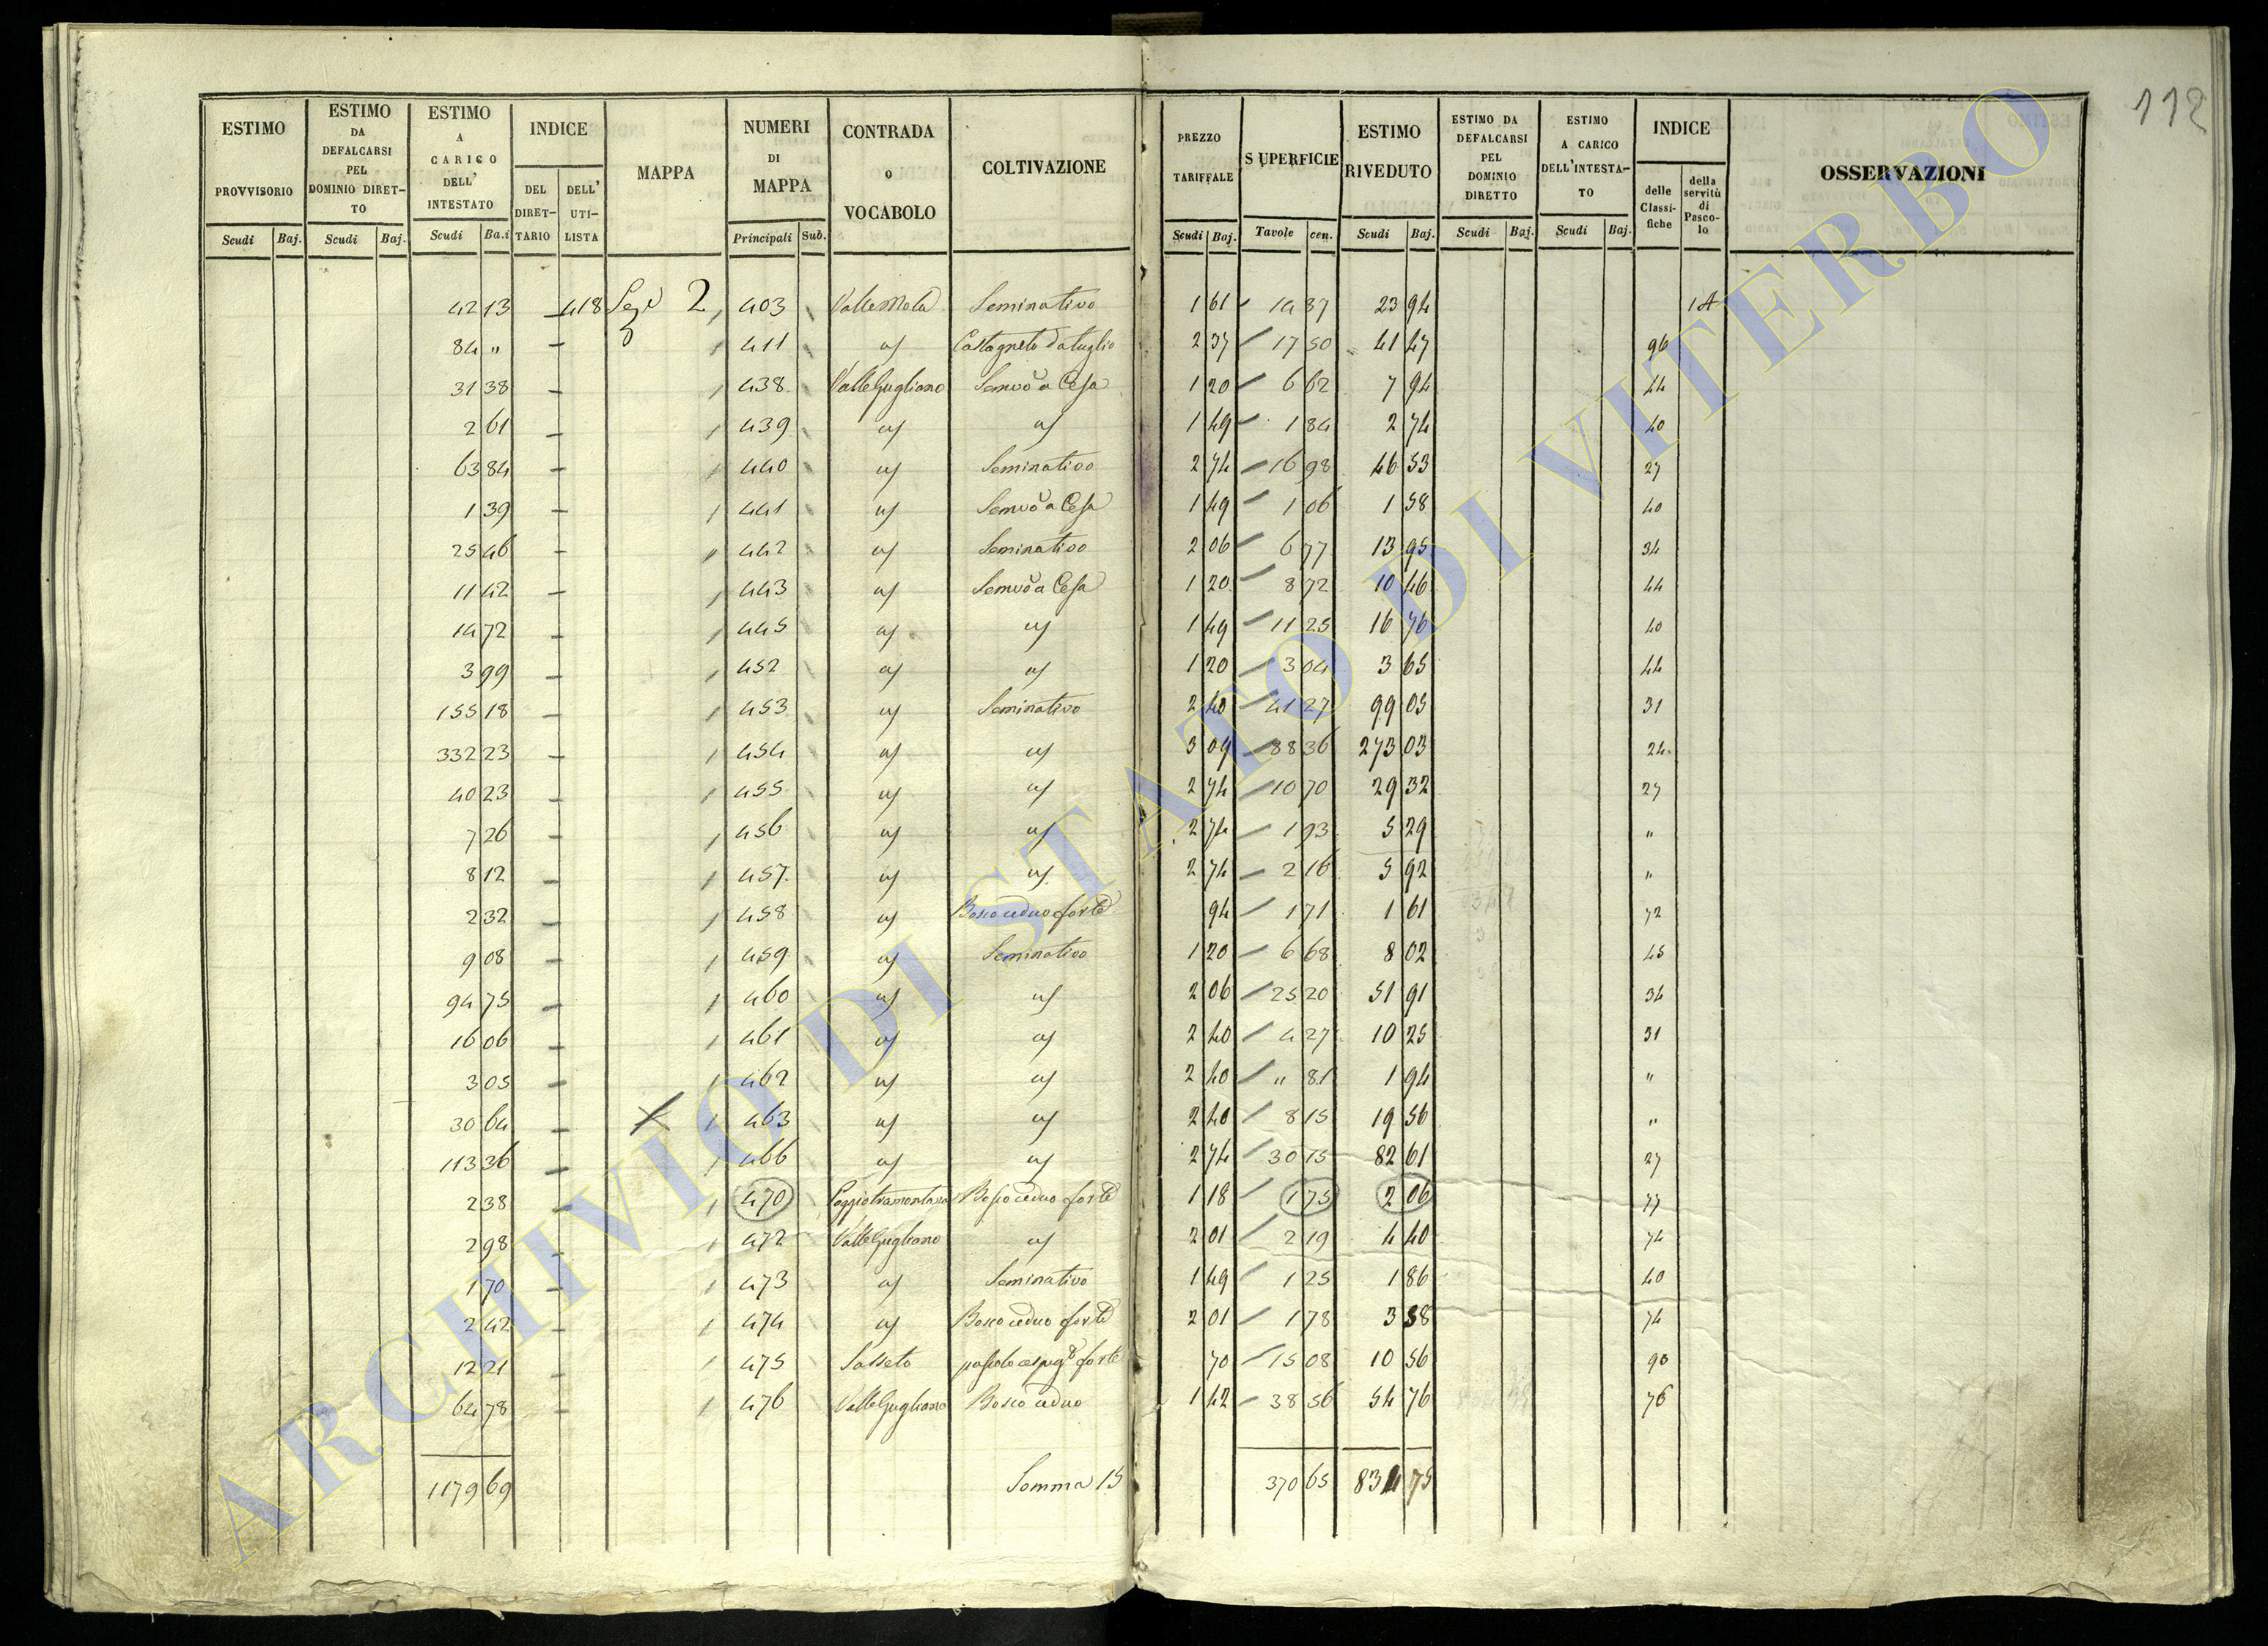 112
ESTIMO PROVVISORIO | ESTIMO DA DEFALCARSI PEL DOMINIO DIRET-TO | ESTIMO A CARICO DELL' INTESTATO | INDICE | MAPPA | NUMERI DI MAPPA | CONTRADA o VOCABOLO | COLTIVAZIONE | PREZZO TARIFFALE | SUPERFICIE | ESTIMO RIVEDUTO | ESTIMO DA DEFALCARSI PEL DOMINIO DIRETTO | ESTIMO A CARICO DELL'INTESTA-TO | INDICE | OSSERVAZIONI
DEL DIRET-TARIO | DELL' UTI-LISTA | delle Classi-fiche | della servitù di Pasco-lo
Scudi | Baj. | Scudi | Baj. | Scudi | Ba.i | Principali | Sub. | Scudi | Baj. | Tavole | cen. | Scudi | Baj. | Scudi | Baj. | Scudi | Baj.
42 13 – 418 2 403 Valle Mola Seminativo 1 61 14 87 23 94 1A
84 " – 411 Castagneto da taglio 2 37 17 50 41 47 96
31 38 – 438 Valle Gugliano Semvo a Cesa 1 20 6 62 7 94 44
2 61 – 439 1 49 1 84 2 74 40
63 84 – 440 Seminativo 2 74 16 98 46 53 27
1 39 – 441 Semvo a Cesa 1 49 1 06 1 58 40
25 46 – 442 Seminativo 2 06 6 77 13 95 34
11 42 – 443 Semvo a Cesa 1 20 8 72 10 46 44
14 72 – 445 1 49 11 25 16 76 40
3 99 – 452 1 20 3 04 3 65 44
155 18 – 453 Seminativo 2 40 41 27 99 05 31
332 23 – 454 3 09 88 36 273 03 24
40 23 – 455 2 74 10 70 29 32 27
7 26 – 456 2 74 1 93 5 29 "
8 12 – 457 2 74 2 16 5 92 "
2 32 – 458 Bosco ceduo forte 94 1 71 1 61 72
9 08 – 459 Seminativo 1 20 6 68 8 02 45
94 75 – 460 2 06 25 20 51 91 34
16 06 – 461 2 40 4 27 10 25 31
3 05 – 462 2 40 " 81 1 94 "
30 64 – 463 2 40 8 15 19 56 "
113 36 – 466 2 74 30 15 82 61 27
2 38 – 470 Poggio tramontana Bosco ceduo forte 1 18 1 75 2 06 77
2 98 – 472 Valle Gugliano 2 01 2 19 4 40 74
1 70 – 473 Seminativo 1 49 1 25 1 86 40
2 42 – 474 Bosco ceduo forte 2 01 1 78 3 58 74
12 21 – 475 Sasseto forte 70 15 08 10 56 90
64 78 – 476 Valle Gugliano Bosco ceduo 1 42 38 56 54 76 76
1179 69 Somma 15 370 65 834 75
ARCHIVIO DI STATO DI VITERBO